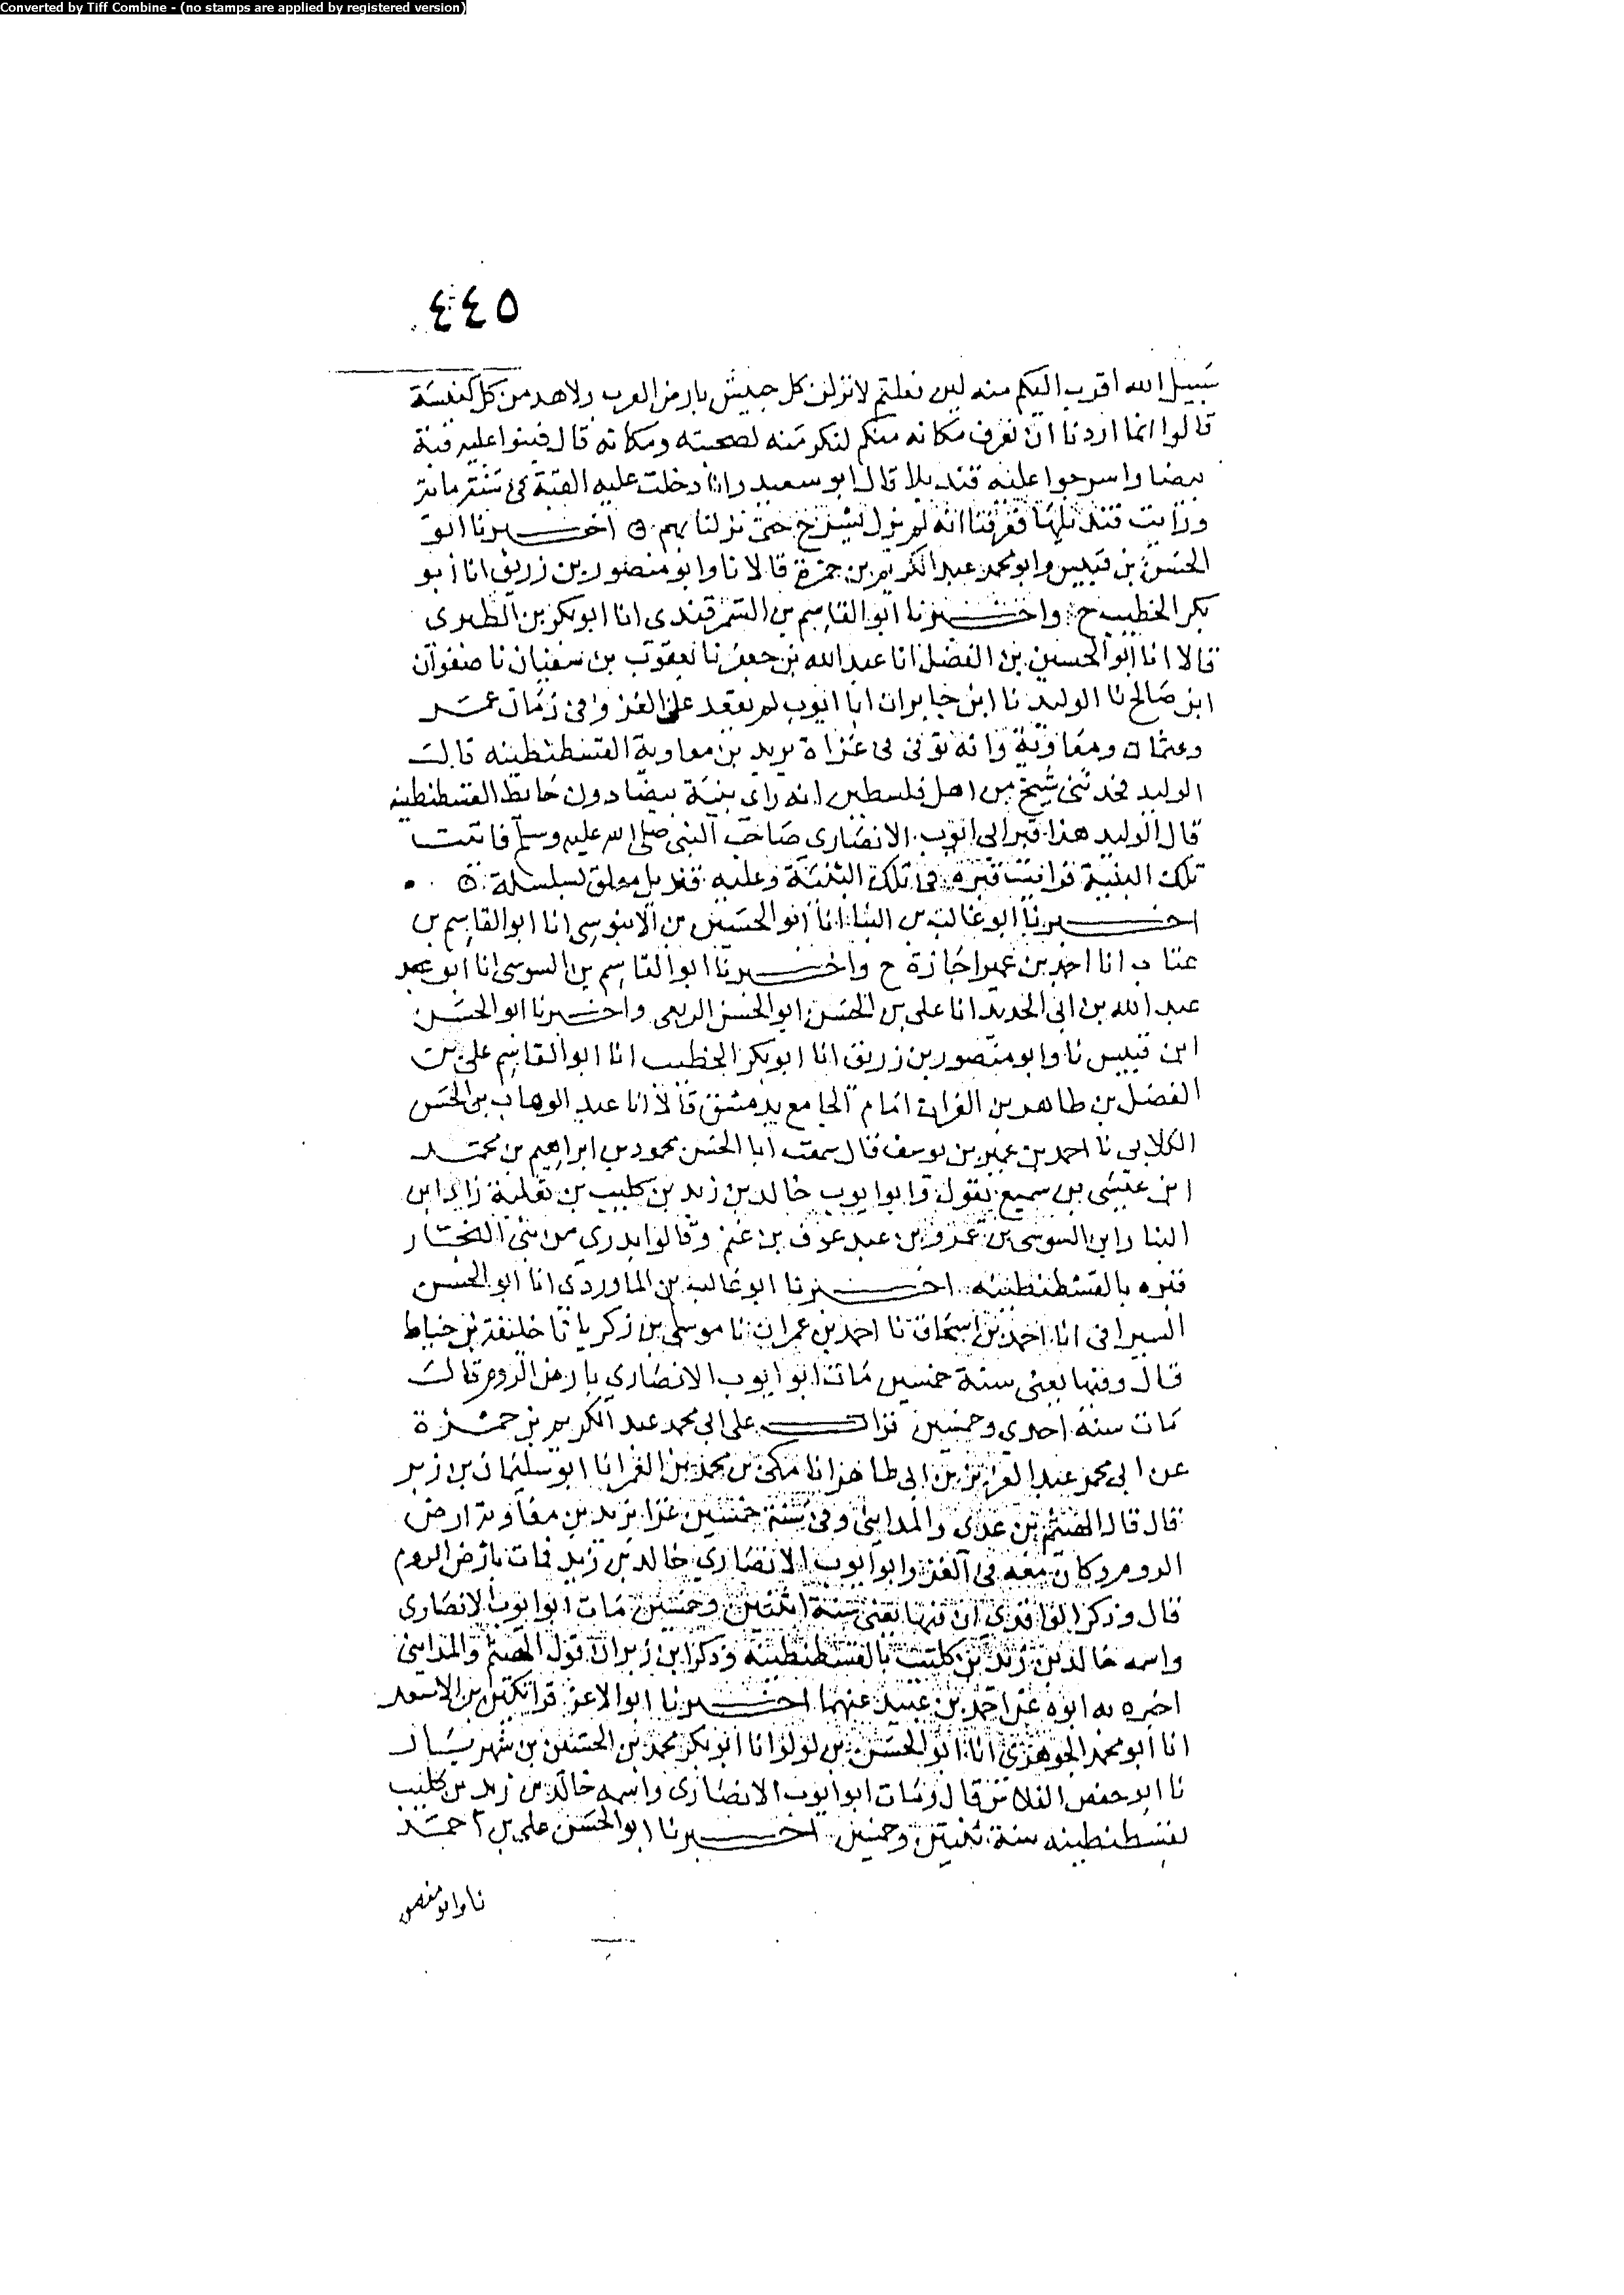 Converted by Tiff Combine - (no stamps are applied by registered version)
٤٤٥
سبيل الله اقرب اليكم منه لين فعلتم لانزلن كل جيش بارض العرب ولاهدمن كل كنيسة
قالوا انما اردنا ان نعرف مكانه منكم لنكرمنه لصحبته ومكانه قال فبنوا عليه قبة
بيضا واسرجوا عليه قنديلا قال ابو سعيد وانا دخلت عليه القبة في
ورايت قنديلها فعرفنا انه لم يزل يسرج حتى نزلنا بهم ه اخبرنا ابو
الحسن بن قبيس وابو محمد عبد الكريم بن حمزة قالا نا وابو منصور بن زريق انا ابو
بكر الخطيب ح واخبرنا ابو القاسم بن السمرقندى انا ابو بكر بن الطبرى
قالا انا ابو الحسين بن الفضل انا عبد الله بن جعفر نا يعقوب بن سفيان نا صفوان
ابن صالح نا الوليد نا ابن جابر ان ابا ايوب لم يقعد على الغزو فى زمان عمر
وعثمان ومعاوية وانه توفى فى غزاة يزيد بن معاوية القسطنطينه قال
الوليد فحدثنى شيخ من اهل فلسطين انه راى بنية بيضا دون حايط القسطنطينه
قال الوليد هذا قبر ابى ايوب الانصارى صاحب النبى صلى الله عليه وسلم فاتيت
تلك البنية فرايت قبره فى تلك البنية وعليه قنديل معلق بسلسلة ه
اخبرنا ابو غالب بن البنا انا ابو الحسين بن الابنوسى انا ابو القاسم بن
عتاب انا احمد بن عمير اجازة ح واخبرنا ابو القاسم بن السوسى انا ابو عبد
عبد الله بن ابى الحديد انا على بن الحسن ابو الحسن الربعى واخبرنا ابو الحسن
ابن قبيس نا وابو منصور بن زريق انا ابو بكر الخطيب انا ابو القاسم على بن
الفضل بن طاهر بن الفرات امام الجامع بدمشق قالا انا عبد الوهاب بن الحسن
الكلابى نا احمد بن عمير بن يوسف قال سمعت ابا الحسن محمود بن ابراهيم بن محمد
ابن عيسى بن سميع يقول وابو ايوب خالد بن زيد بن كليب بن ثعلبة زاد ابن
البنا وابن السوسى بن عمرو بن عبد عوف بن غنم وقالوا بدري من بنى النجار
قبره بالقسطنطينيه اخبرنا ابو غالب بن الماوردى انا ابو الحسن
السيرافى انا احمد بن اسحاق نا احمد بن عمران نا موسى بن زكريا نا خليفة بن خياط
قال وفيها يعنى سنة خمسين مات ابو ايوب الانصارى بارض الروم قال
مات سنة احدى وخمسين قرات على ابى محمد عبد الكريم بن حمزة
عن ابى محمد عبد العزيز بن ابى طاهر انا مكى بن محمد بن الغمر انا ابو سليمان بن زبر
قال قال الهيثم بن عدى والمداينى وفى سنة خمسين غزا يزيد بن معاوية ارض
الروم وكان معه فى الغزو ابو ايوب الانصارى خالد بن زيد فمات بارض الروم
قال وذكر الواقدى ان فيها يعنى سنة اثنتين وخمسين مات ابو ايوب الانصارى
واسمه خالد بن زيد بن كليب بالقسطنطينية وذكر ابن زبر ان قول الهيثم والمداينى
اخبره به ابوه عن احمد بن عبيد عنهما اخبرنا ابو الاعز قراتكين بن الاسعد
انا ابو محمد الجوهرى انا ابو الحسن بن لولو انا ابو بكر محمد بن الحسين بن شهريار
نا ابو حفص الفلاس قال ومات ابو ايوب الانصارى واسمه خالد بن زيد بن كليب
بقسطنطينه سنة ثنتين وخمسين اخبرنا ابو الحسن على بن احمد
نا وابو منصور